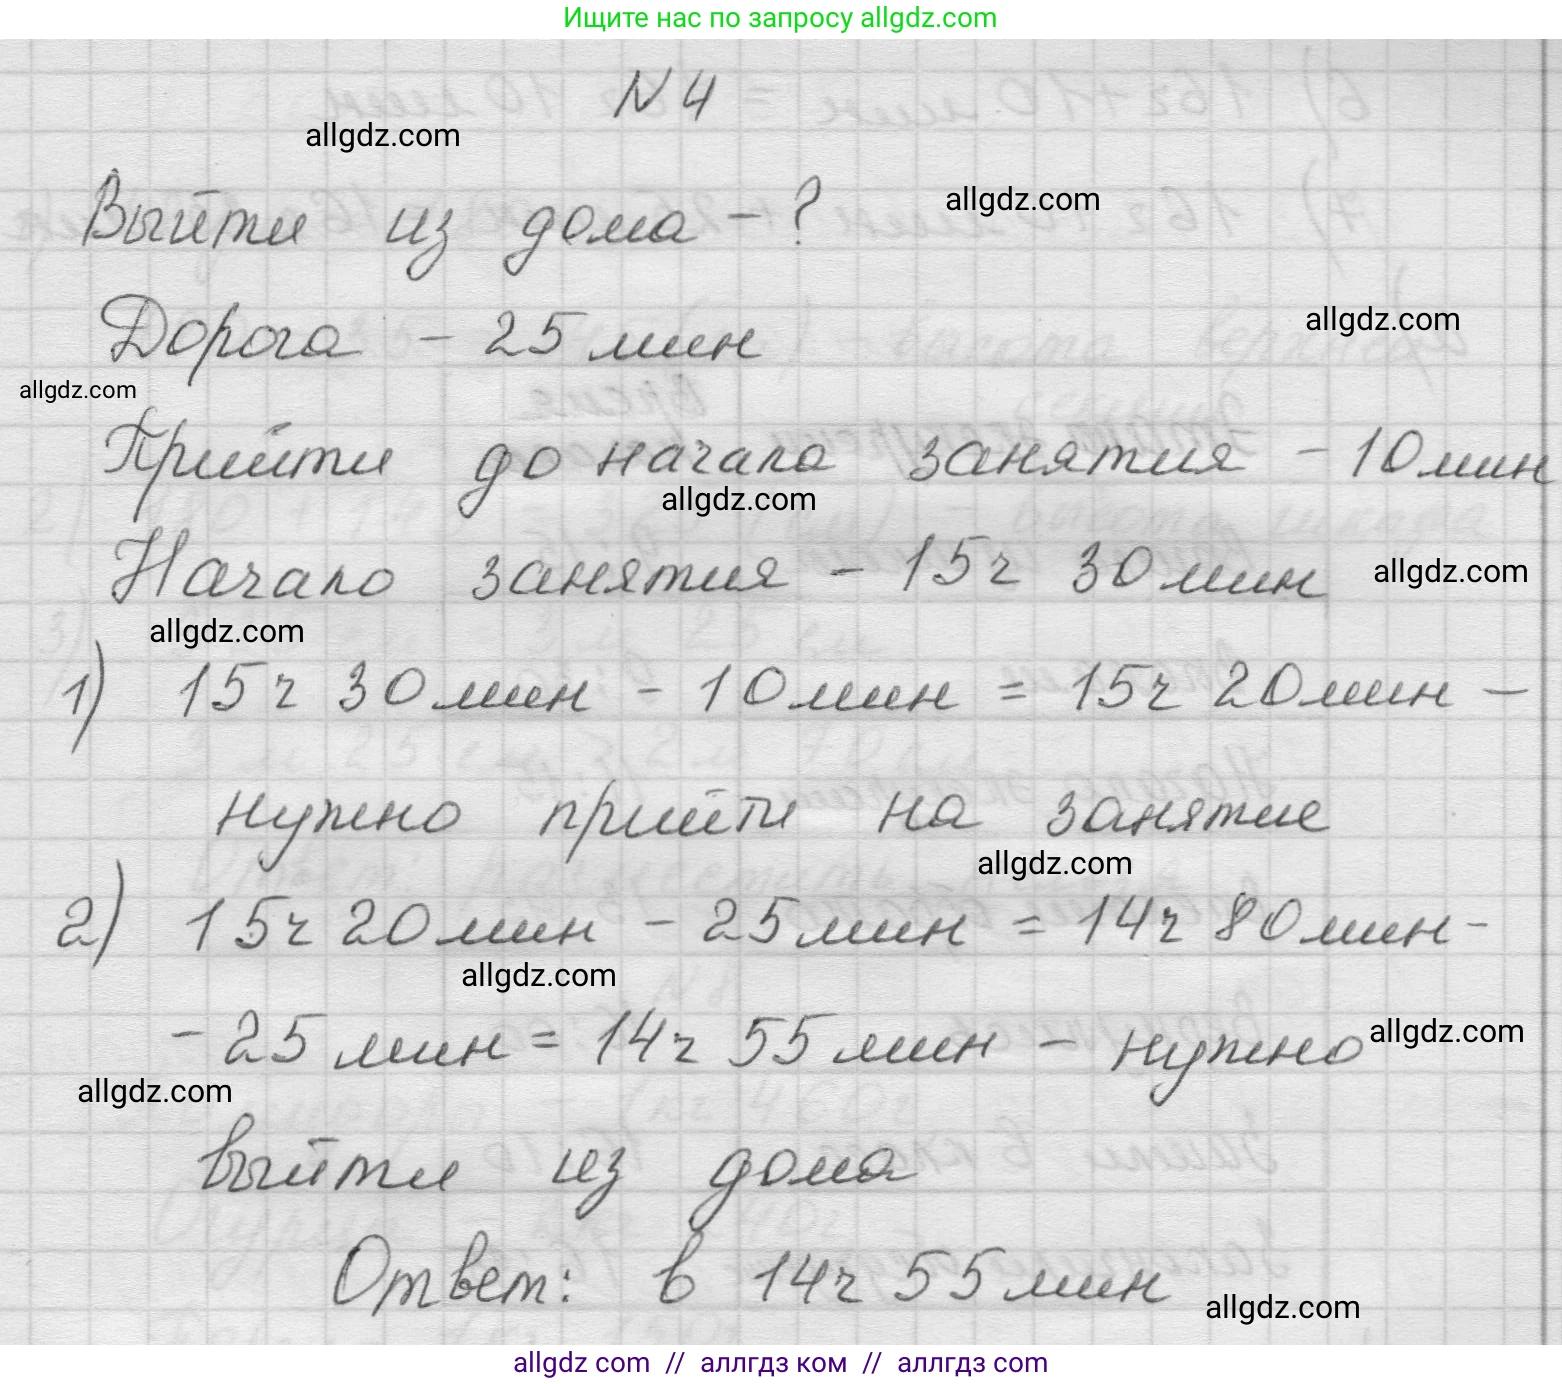 Ищите нас по запросу allgdz.com
N 4
allgdz.com
Выйти из дома - ?
allgdz.com
Дорога - 25 мин
allgdz.com
allgdz.com
Прийти до начала занятия - 10 мин
allgdz.com
Начало занятия - 15 ч 30 мин
allgdz.com
allgdz.com
1) 15 ч 30 мин - 10 мин = 15 ч 20 мин -
нужно прийти на занятие
allgdz.com
2) 15 ч 20 мин - 25 мин = 14 ч 80 мин -
allgdz.com
- 25 мин = 14 ч 55 мин - нужно
allgdz.com
allgdz.com
выйти из дома
Ответ: в 14 ч 55 мин
allgdz.com
allgdz com // аллгдз ком // аллгдз com